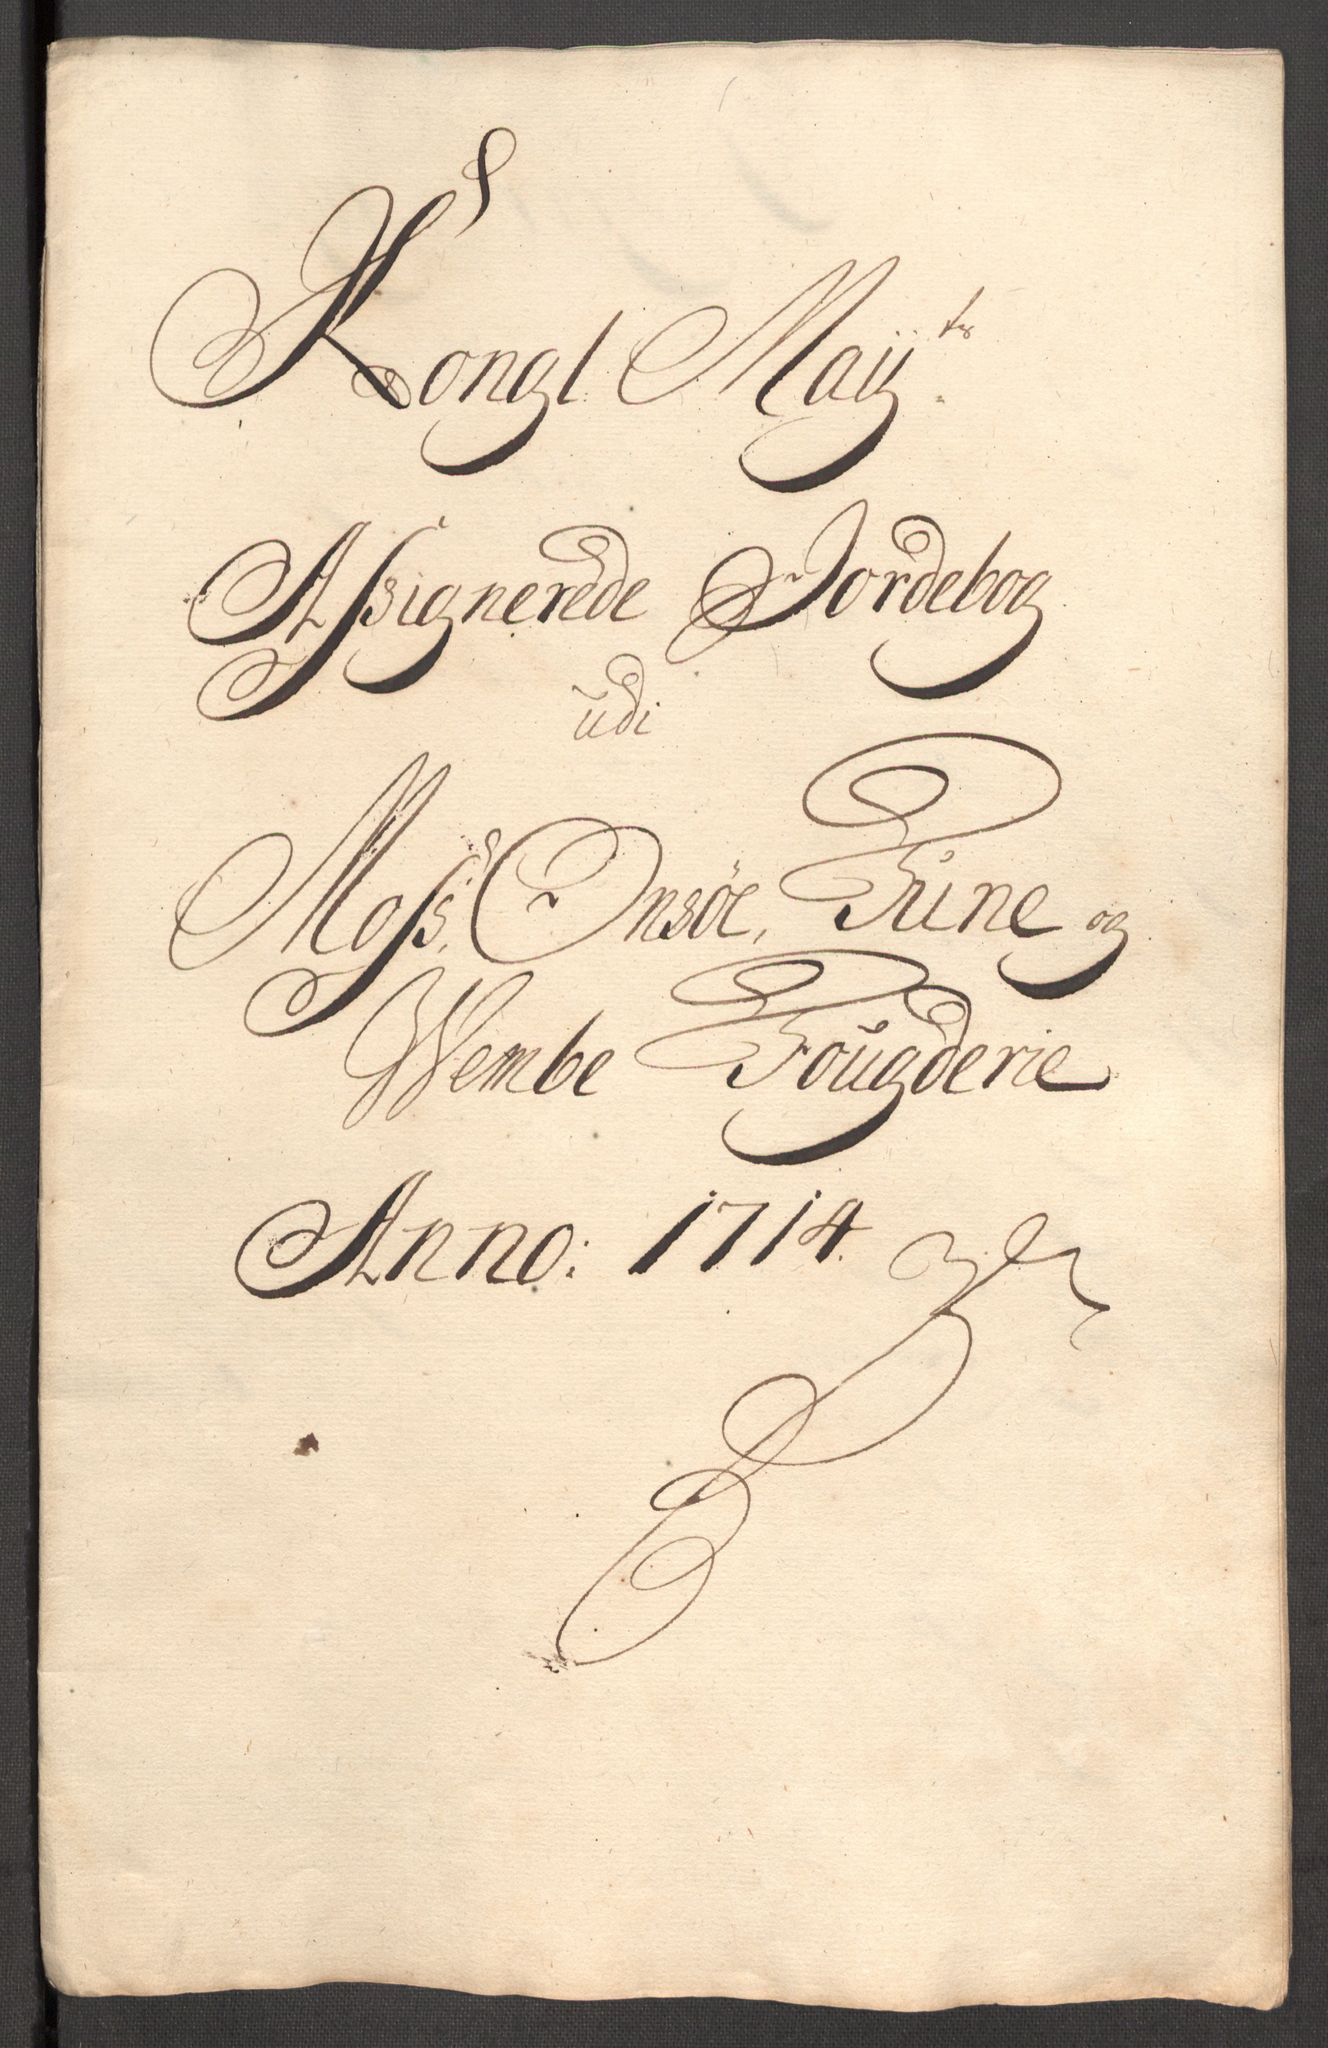 Kongl Maÿ.ts
Assignerede Jordebog
udi
Moss, Onsöe, Tune og
Wembe Fougderie
Anno: 1714.